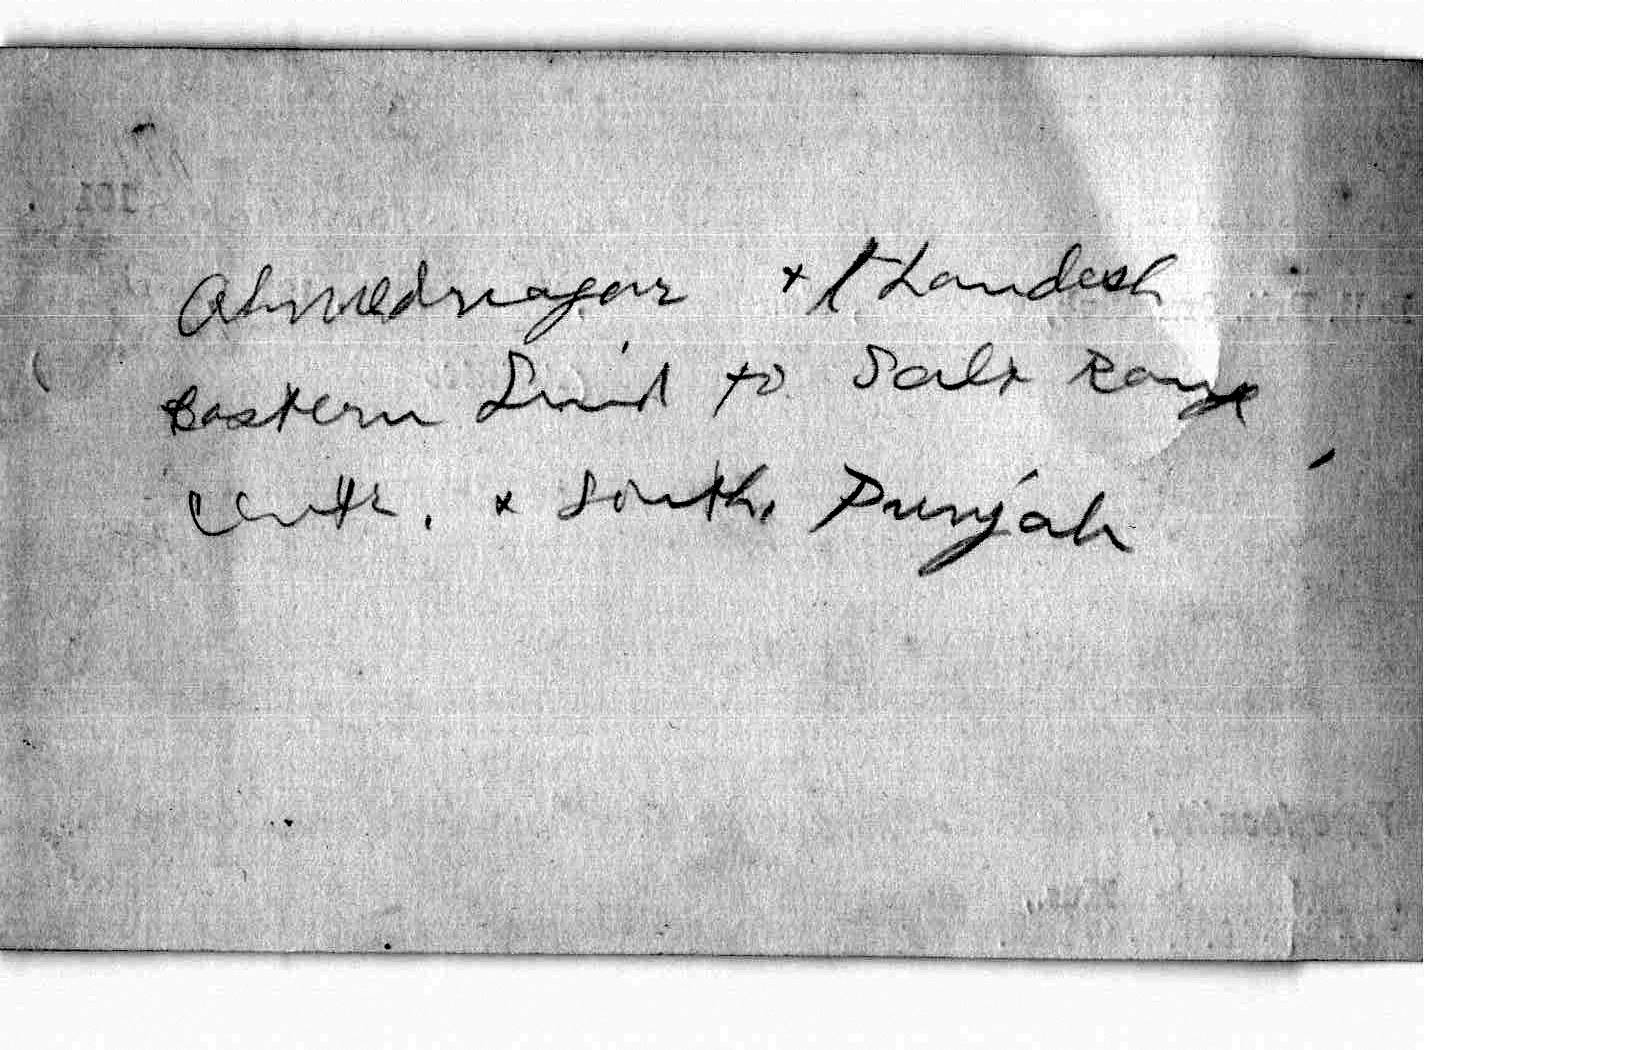 Ahmednagar + Khandesh
Eastern Sind to Salt Range
Centr. + South. Punjab